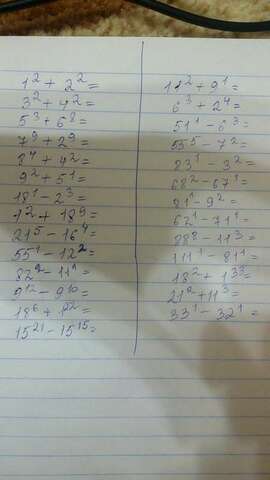 1² + 2² =
3² + 4² =
5³ + 6⁸ =
7⁹ + 2⁹ =
8⁴ + 4² =
9² + 5¹ =
18¹ - 2³ =
1² + 18⁹ =
21⁵ - 16⁴ =
55¹ - 12² =
82² - 11¹ =
9¹² - 9¹⁰ =
18⁶ + 1²² =
15²¹ - 15¹⁵ =
11² + 9¹ =
6³ + 2⁴ =
51¹ - 6³ =
55⁵ - 7² =
23¹ - 3² =
68² - 67¹ =
81¹ - 9² =
62¹ - 71¹ =
88⁸ - 11³ =
111¹ - 81¹ =
18² + 1³³ =
21² + 11³ =
33¹ - 32¹ =